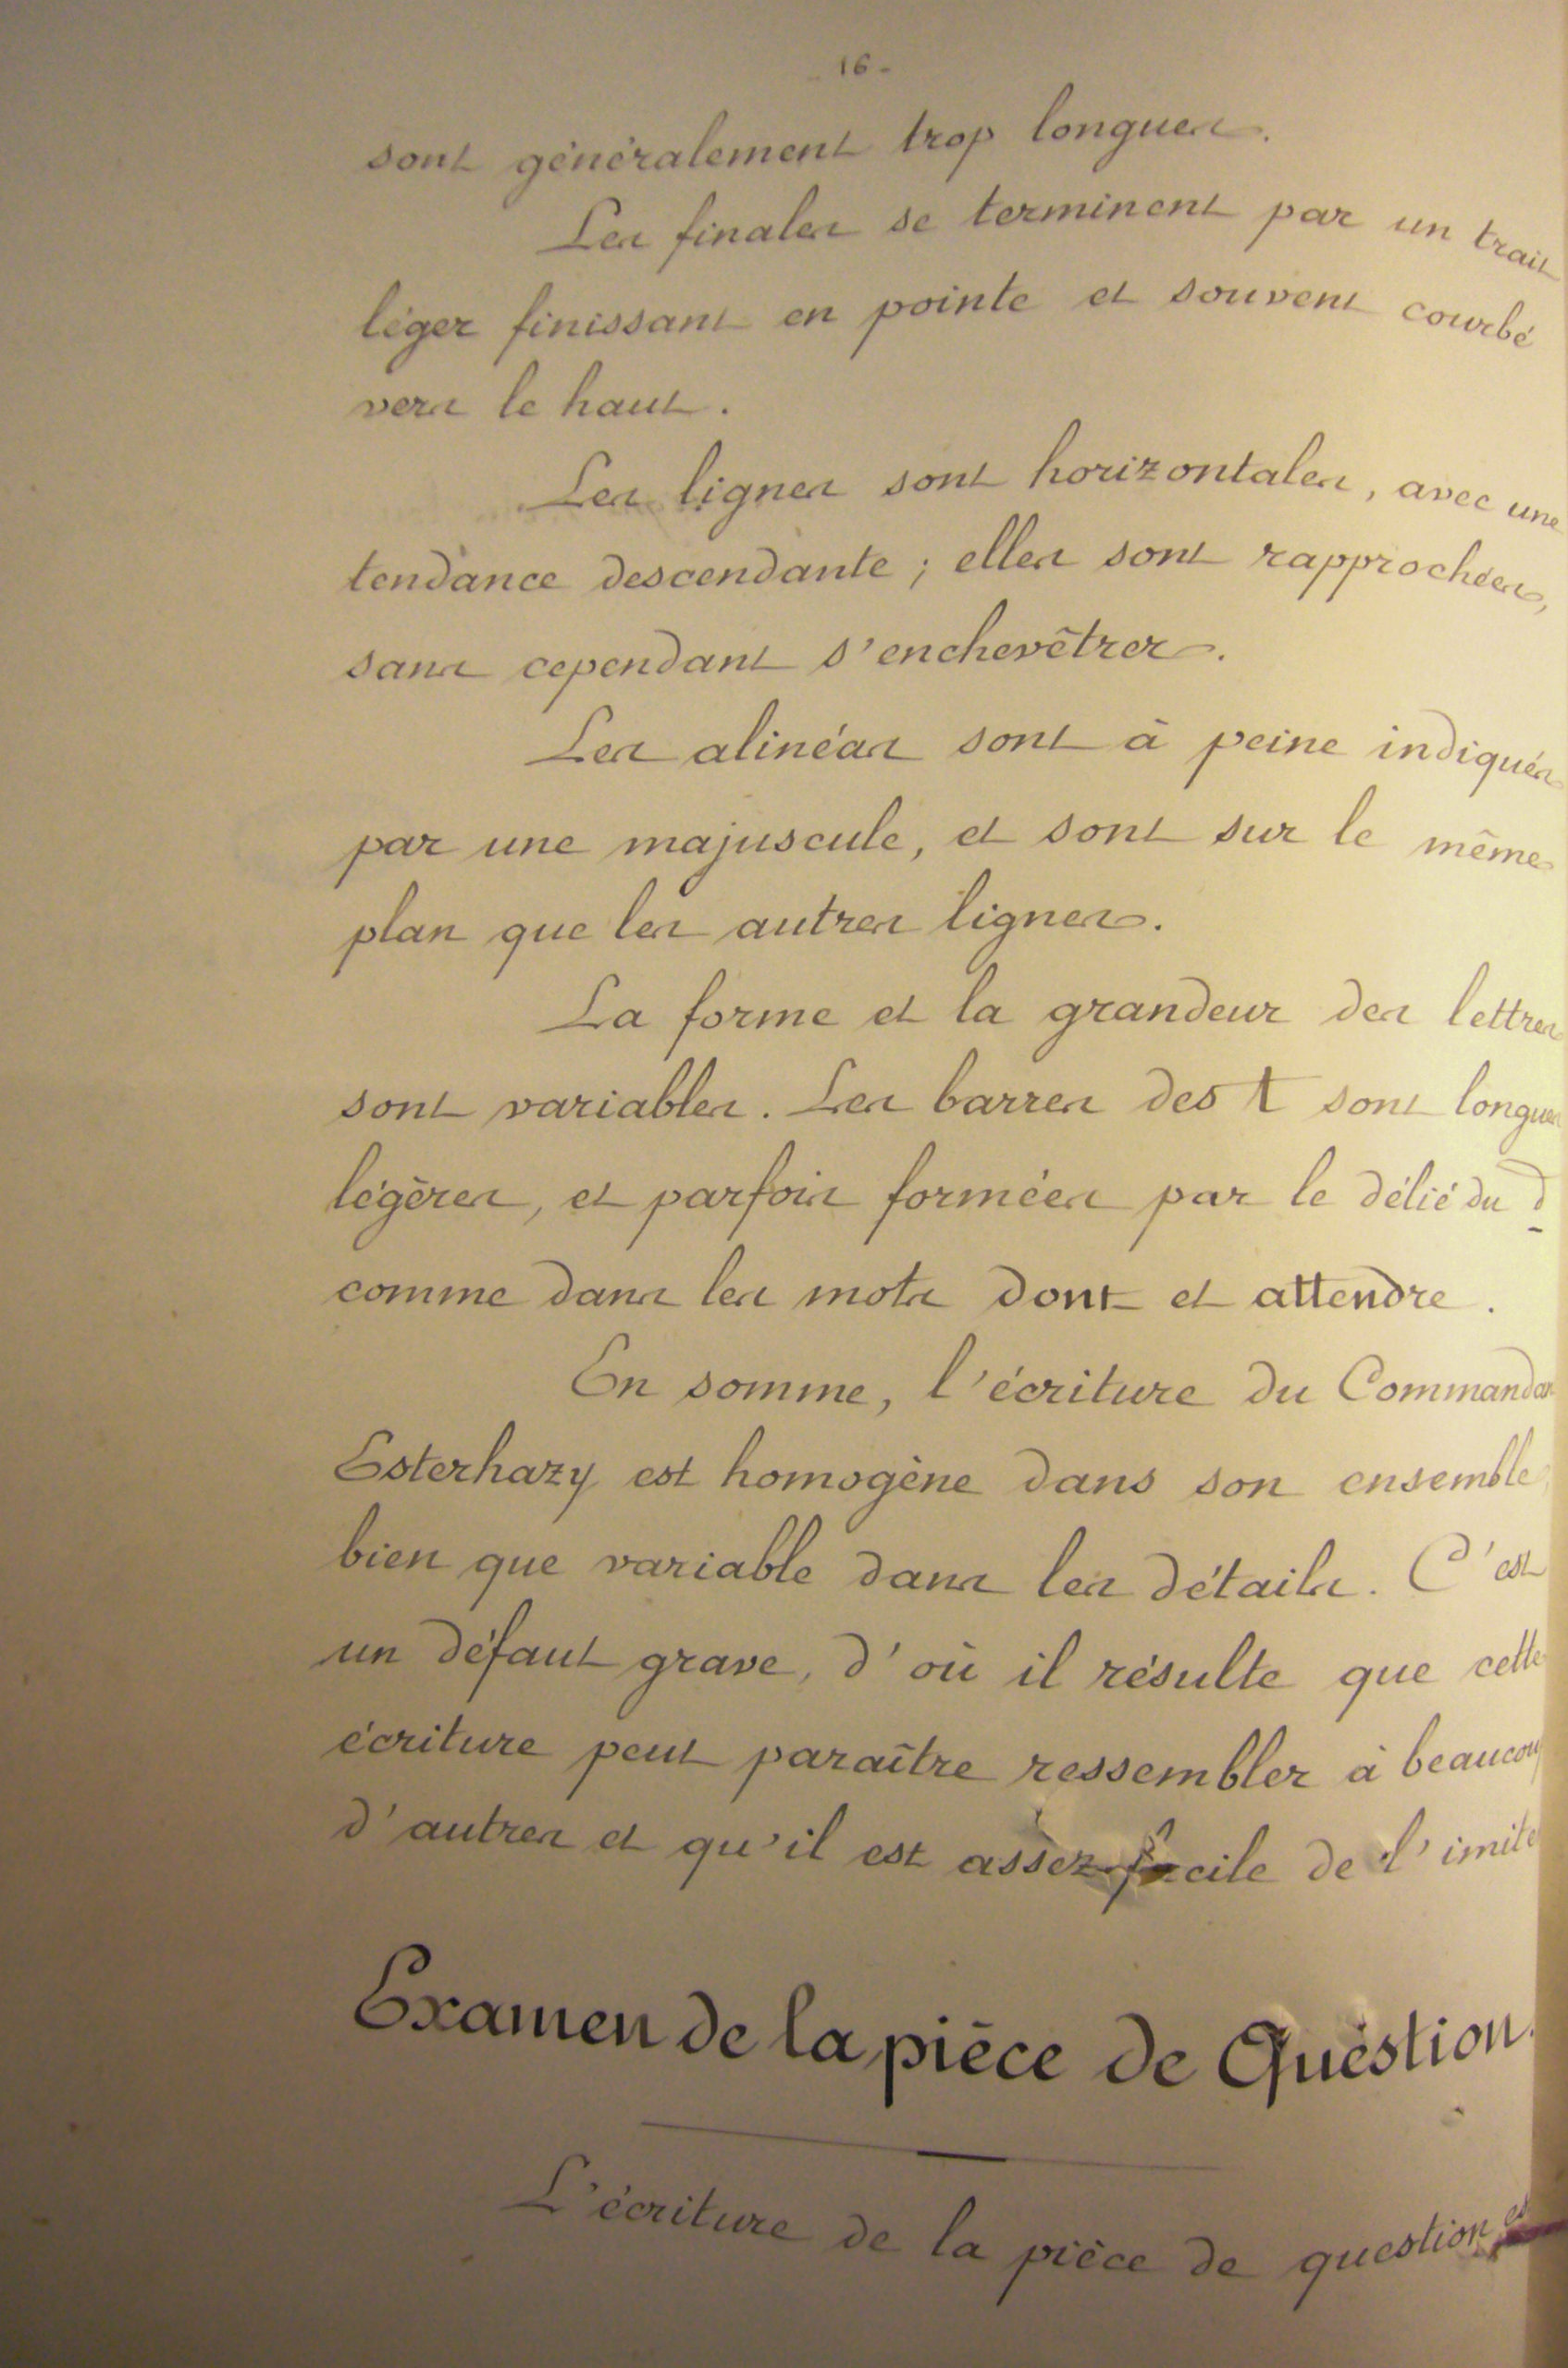 16.
sont généralement trop longues.
Les finales se terminent par un trait
léger finissant en pointe et souvent courbé
vers le haut.
Les lignes sont horizontales, avec une
tendance descendante ; elles sont rapprochées,
sans cependant s'enchevêtrer.
Les alinéas sont à peine indiqués
par une majuscule, et sont sur le même
plan que les autres lignes.
La forme et la grandeur des lettres
sont variables. Les barres des t sont longues
légères, et parfois formées par le délié du d
comme dans les mots dont et attendre.
En somme, l'écriture du Commandan
Esterhazy est homogène dans son ensemble,
bien que variable dans les détails. C'est
un défaut grave, d'où il résulte que cette
écriture peut paraître ressembler à beaucoup
d'autres et qu'il est assez facile de l'imite
Examen de la pièce de Question.
L'écriture de la pièce de question es